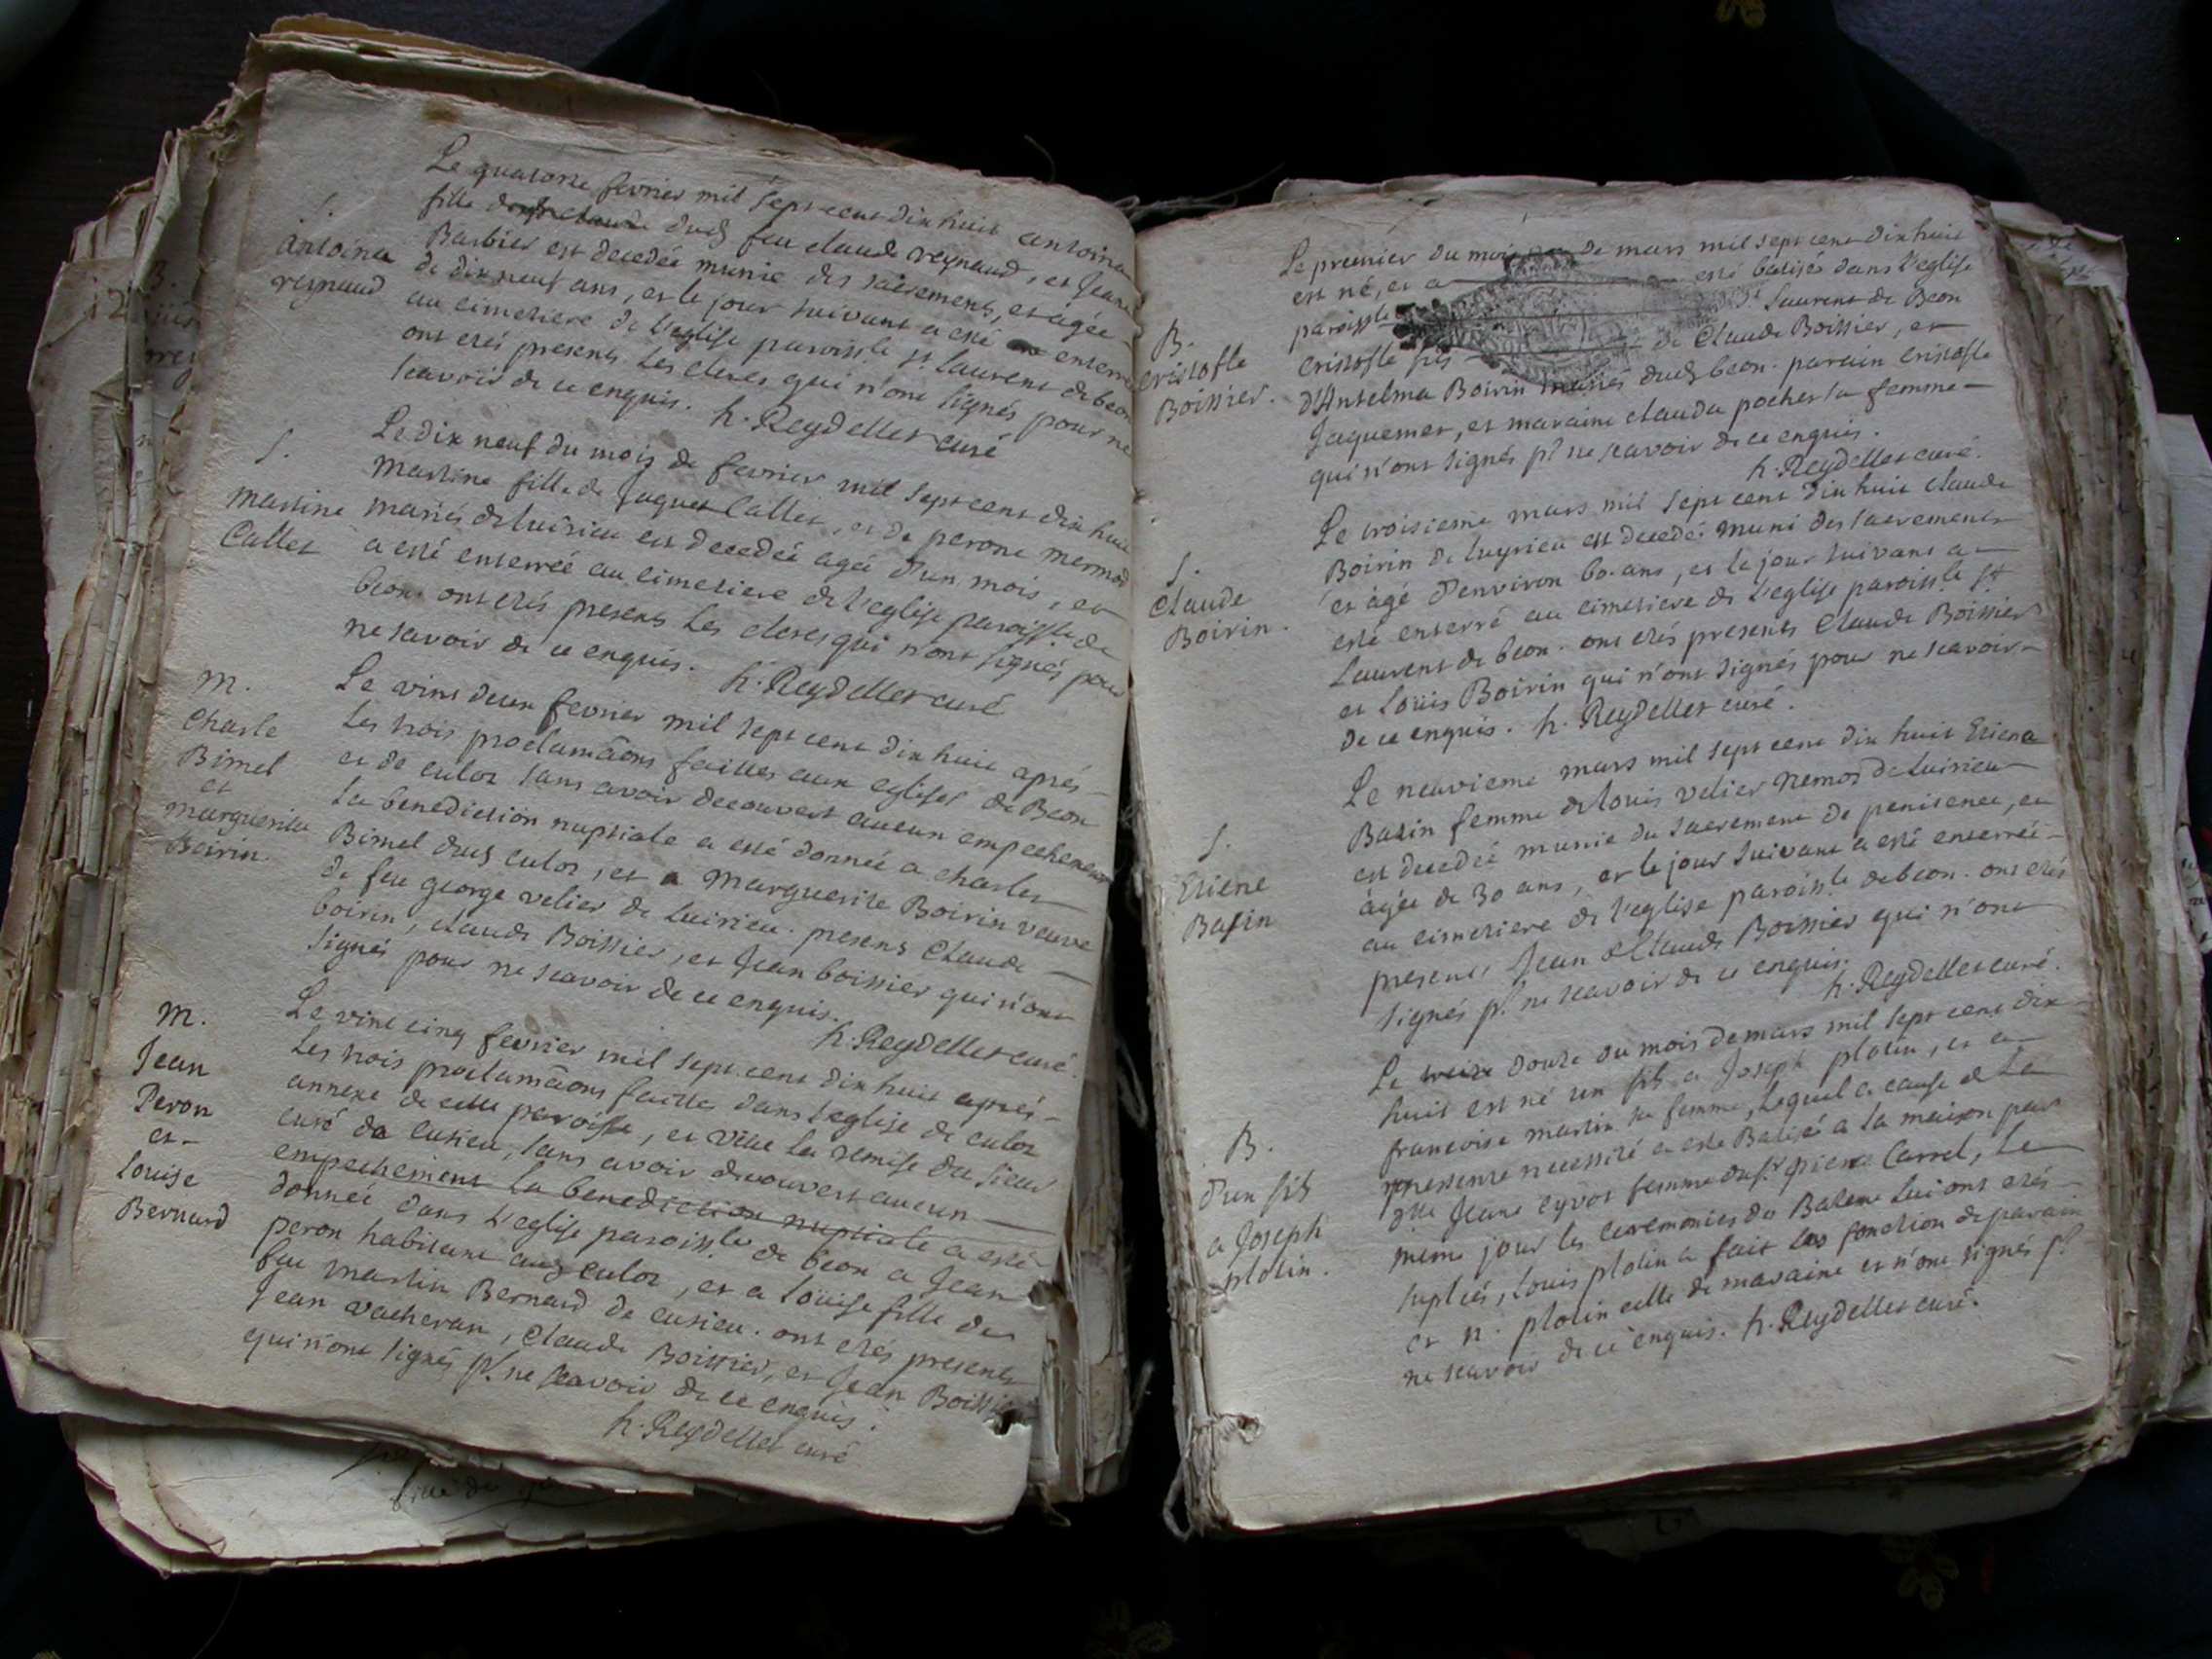 Le quatorze fevrier mil sept cent dix huit antoina
fille dud feu claude reynaud, et Jeane
Barbier est decedée munie des sacrements, et agée
de dix neuf ans, et le jour suivant a esté enterré
au cimetiere de l'eglise paroissle st laurent de beon
ont etés presents les clercs qui n'ont signés pour ne
scavoir de ce enquis. h. Reydellet curé
S.
Antoina
reynaud
Le dix neuf du mois de fevrier mil sept cent dix huit
martine fille de Jaques Callet, et de perone mermod
mariés de luirieu est decedée agée d'un mois, et
a esté enterrée au cimetiere de l'eglise paroissle de
beon. ont etés presents les clercs qui n'ont signés pour
ne savoir de ce enquis. h. Reydellet curé
S.
martine
Callet
Le vint deux fevrier mil sept cent dix huit aprés
les trois proclamaons faittes aux eglises de Beon
et de culoz sans avoir decouvert aucun empechement
la benediction nuptiale a esté donnée a charles
Bimel dud culoz, et a Marguerite Boirin veuve
de feu george velier de luirieu. presens Claude
boirin, claude Boissier, et Jean boissier qui n'ont
signés pour ne scavoir de ce enquis.
h. Reydellet curé.
m.
Charle
Bimel
et
marguerite
Boirin.
Le vint cinq fevrier mil sept cent dix huit aprés
les trois proclamaons faittes dans l'eglise de culoz
annexe de cette paroisse, et vüe la remise du sieur
curé de cusieu, sans avoir decouvert aucun
empechement la benediction nuptiale a esté
donnée dans l'eglise paroissle de beon a Jean
peron habitant aud culoz, et a Loüise fille de
feu martin Bernard de cusieu. ont etés presents
Jean vacheran, Claude Boissier, et Jean Boissier
qui n'ont signés pr ne scavoir de ce enquis.
h. Reydellet curé
m.
Jean
Peron
et
Louise
Bernard
Le premier du mois de mars mil sept cent dix huit
est né, et a esté batisés dans l'eglise
paroissle st laurent de Beon
cristofle fils de Claude Boissier, et
d'Antelma Boirin mariés dud beon. parain cristofle
Jaquemet, et maraine clauda pochet sa femme
qui n'ont signés pr ne scavoir de ce enquis.
h. Reydellet curé.
B.
cristofle
Boissier.
Le troisieme mars mil sept cent dix huit claude
Boirin de luyrieu est decedé muni des sacrements
et agé d'environ 60. ans, et le jour suivant a
esté enterré au cimetiere de l'eglise paroissle st
Laurent de beon. ont etés presents Claude Boissier
et Loüis Boirin qui n'ont signés pour ne scavoir
de ce enquis. h. Reydellet curé.
S.
Claude
Boirin.
Le neuvieme mars mil sept cent dix huit Etiena
Bazin femme de louis velier nemoz de Luirieu
est decedée munie du sacrement de penitence, et
agée de 30 ans, et le jour suivant a esté enterrée
au cimetiere de l'eglise paroissle de beon. ont etés
presents Jean & Claude Boissier qui n'ont
signés pr ne scavoir de ce enquis.
h. Reydellet curé.
S.
Etiene
Basin
Le treize douze du mois de mars mil sept cent dix
huit est né un fils a Joseph plotin, et a
francoise martin sa femme, lequel a cause de la
pressente necessité a esté Batisé a la maison par
dlle Jeane cyvot femme du sr pierre Carrel, Le
meme jour les ceremonies du Bateme lui ont etés
supleés, Louis plotin a fait las fonction de parain
et n. plotin celle de maraine et n'ont signés pr
ne scavoir de ce enquis. h. Reydellet curé.
B.
d'un fils
a Joseph
plotin.